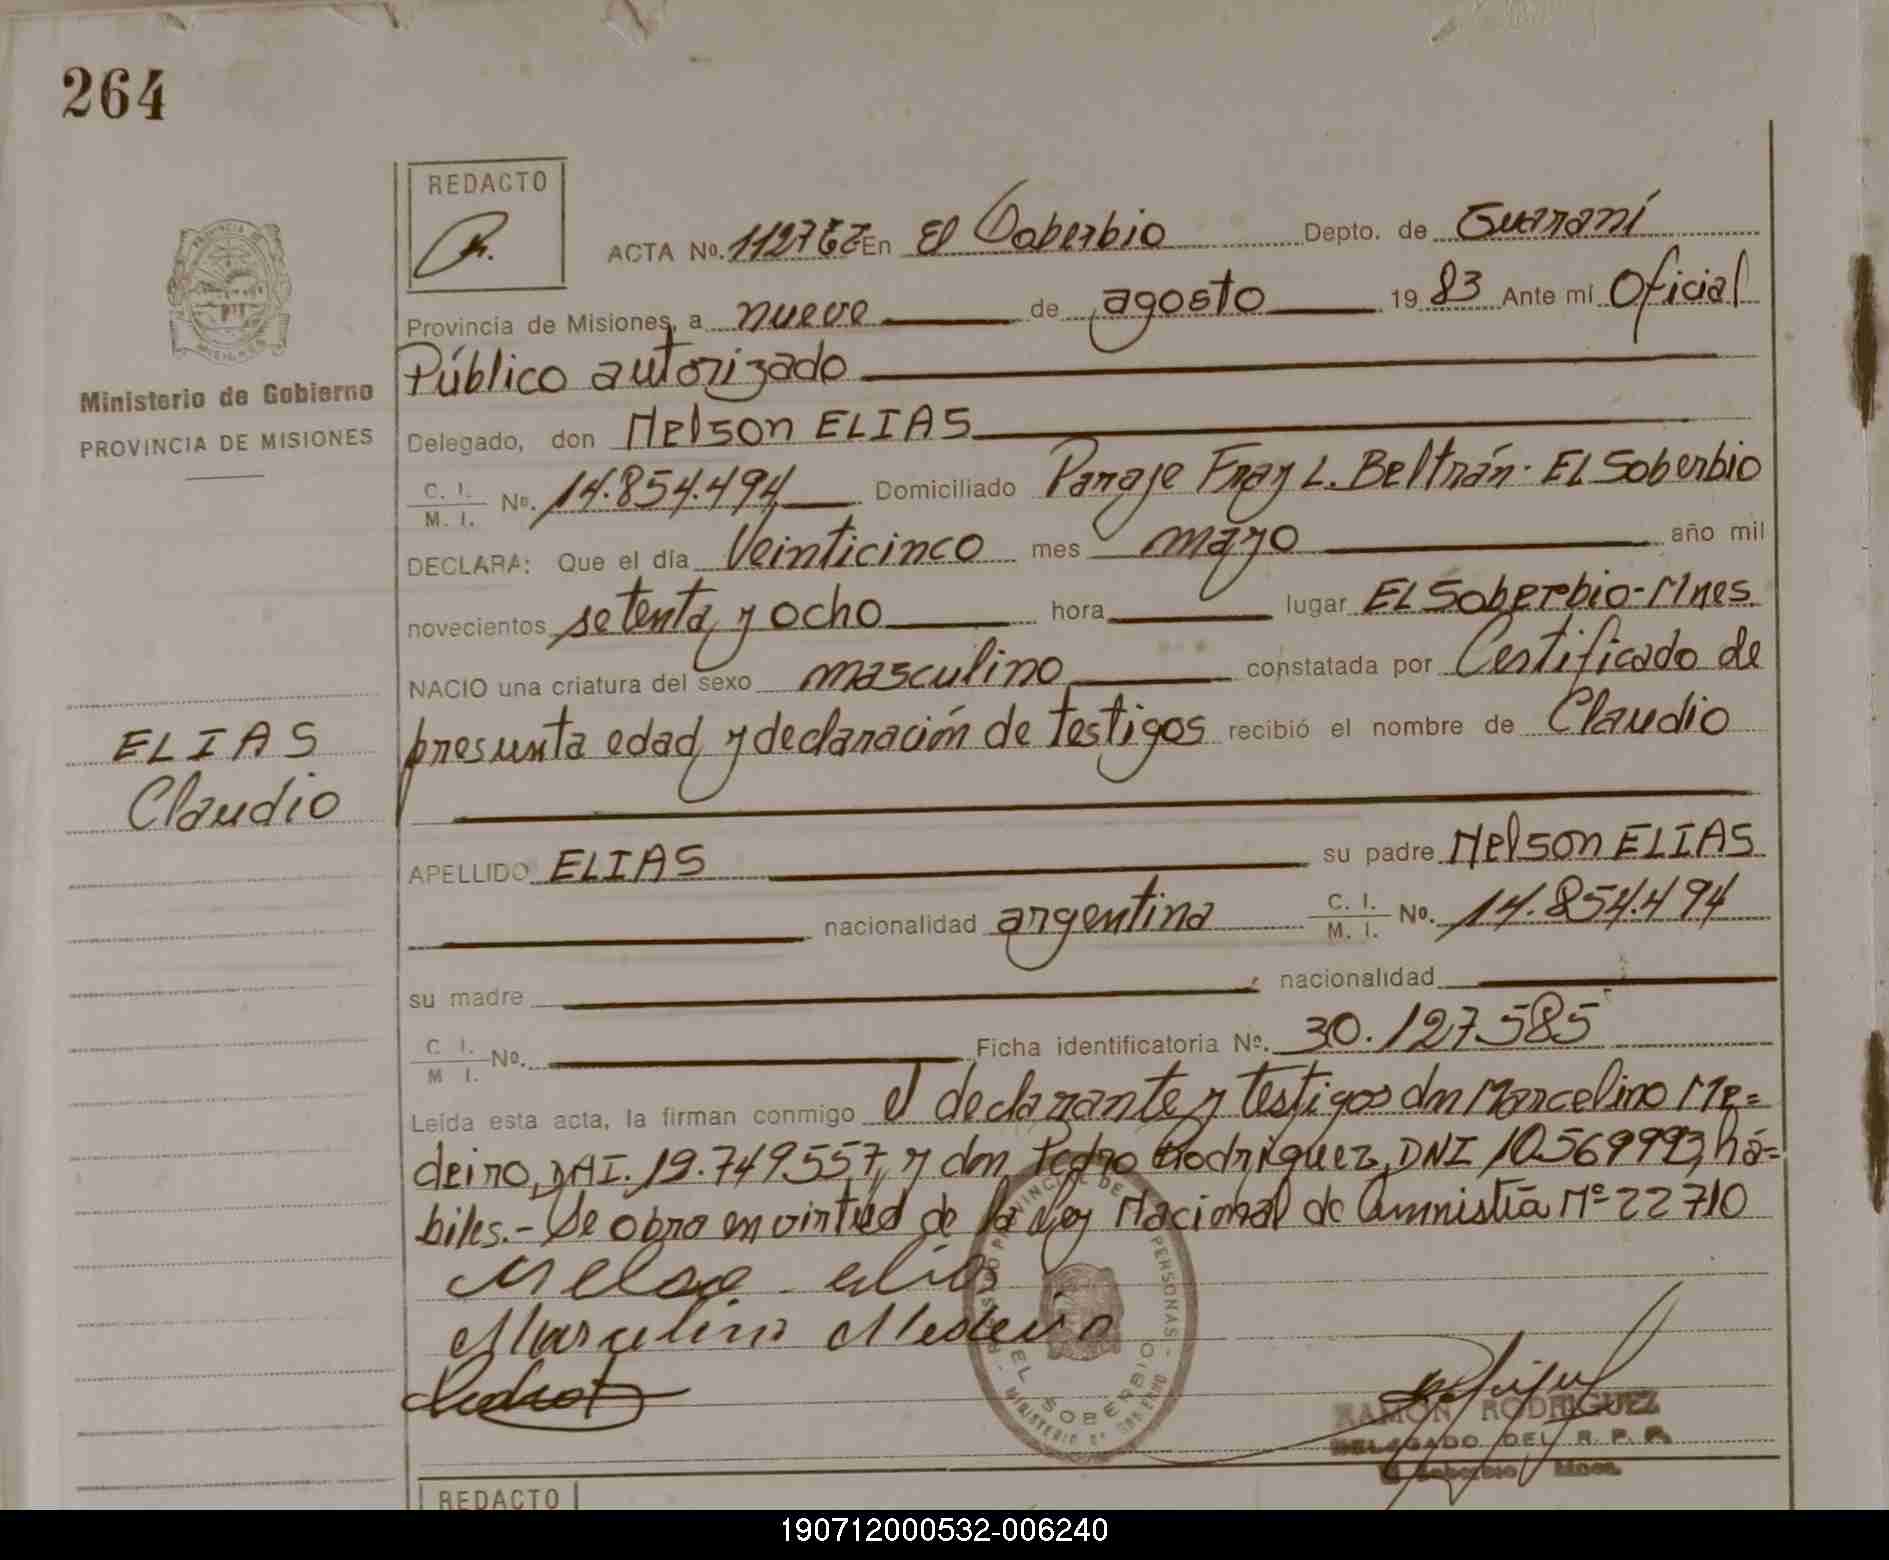 264
REDACTO
ACTA No. En El Soberbio Depto. de Guaraní
Provincia de Misiones, a nueve de agosto 1983 Ante mi Oficial
Público autorizado
Ministerio de Gobierno
PROVINCIA DE MISIONES
Delegado, don Nelson ELIAS
C. I. M. I. No. 14.854.494, Domiciliado Paraje Fray L. Beltrán - EL Soberbio
DECLARA: Que el día Veinticinco mes mayo año mil
novecientos setenta y ocho hora lugar EL Soberbio-Mnes
NACIO una criatura del sexo masculino constatada por Certificado de
presunta edad y declaración de testigos recibió el nombre de Claudio
ELIAS
Claudio
APELLIDO ELIAS su padre Nelson ELIAS
nacionalidad argentina C. I. M. I. No. 14.854.494
su madre nacionalidad
C. I. M. I. No. Ficha identificatoria No. 30.127.585
Leída esta acta, la firman conmigo el declarante y testigos dn Marcelino Me=
deiro, DNI. 19.749557, y don Pedro Rodriguez, DNI 10.569993, há=
biles.- Se obra en virtud de la Ley Nacional de Amnistia Nº 22710
Nelso elias
Marcelino Medeiro
Pedro
REGISTRO PROVINCIAL DE PERSONAS
EL SOBERBIO
MINISTERIO DE GOBIERNO
RAMON RODRIGUEZ
DELEGADO DEL R. P. P.
El Soberbio Mnes.
REDACTO
190712000532-006240